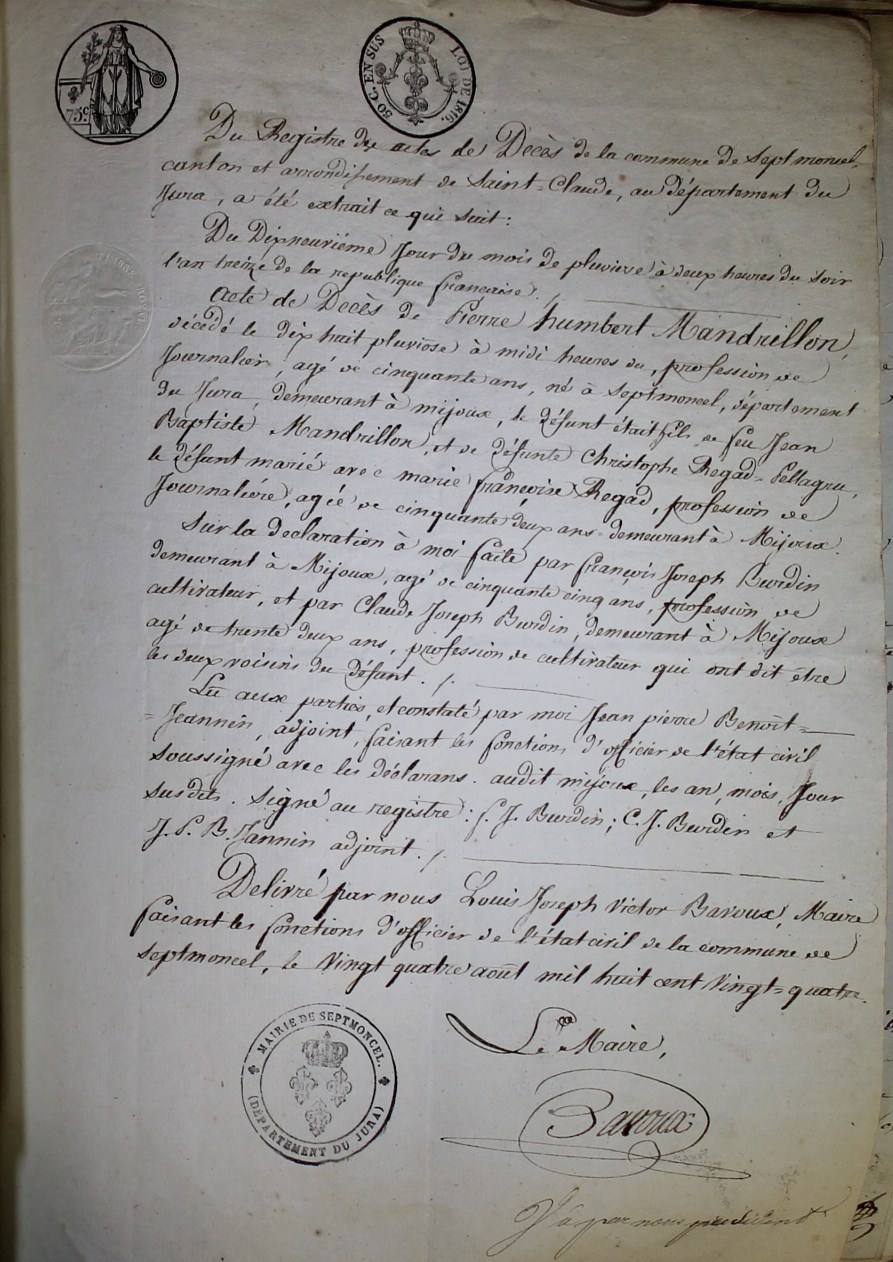 75c
50 C. EN SUS LOI DE 1816.
Du Registre des actes de Décès de la commune de Septmoncel,
canton et arrondissement de Saint-Claude, au département du
Jura, a été extrait ce qui suit :
Du Dixneuviéme Jour du mois de pluviose à deux heures du soir
l'an treize de la republique française. /.
Acte de Décès de Pierre humbert Mandrillon,
décédé le dix huit pluviose à midi heures du, profession de
Journalier, agé de cinquante ans, né à Septmoncel, département
du Jura, demeurant à mijoux, le défunt était fils de feu Jean
Baptiste Mandrillon, et de défunte Christophe Regad-Pellagru,
le défunt marié avec marie françoise Regad, profession de
Journaliére, agée de cinquante deux ans demeurant à Mijoux.
Sur la declaration à moi faite par françois Joseph Burdin
demeurant à Mijoux, agé de cinquante cinq ans, profession de
cultivateur, et par Claude Joseph Burdin, demeurant à Mijoux
agé de trente deux ans, profession de cultivateur qui ont dit être
les deux voisins du défunt. /.
Lu aux parties, et constaté par moi Jean pierre Benoit-
=Jeannin, adjoint, faisant les fonctions d'officier de l'état civil
soussigné avec les déclarans. audit mijoux, les an, mois, Jour
susdits. Signé au registre : f. J. Burdin; C. J. Burdin et
J. P. B. Jannin adjoint. /.
Delivré par nous Louis Joseph Victor Bavoux, Maire
faisant les fonctions d'officier de l'état civil de la commune de
Septmoncel, le vingt quatre août mil huit cent vingt=quatre.
Le Maire,
Bavoux
MAIRIE DE SEPTMONCEL.
(DÉPARTEMENT DU JURA)
par nous président